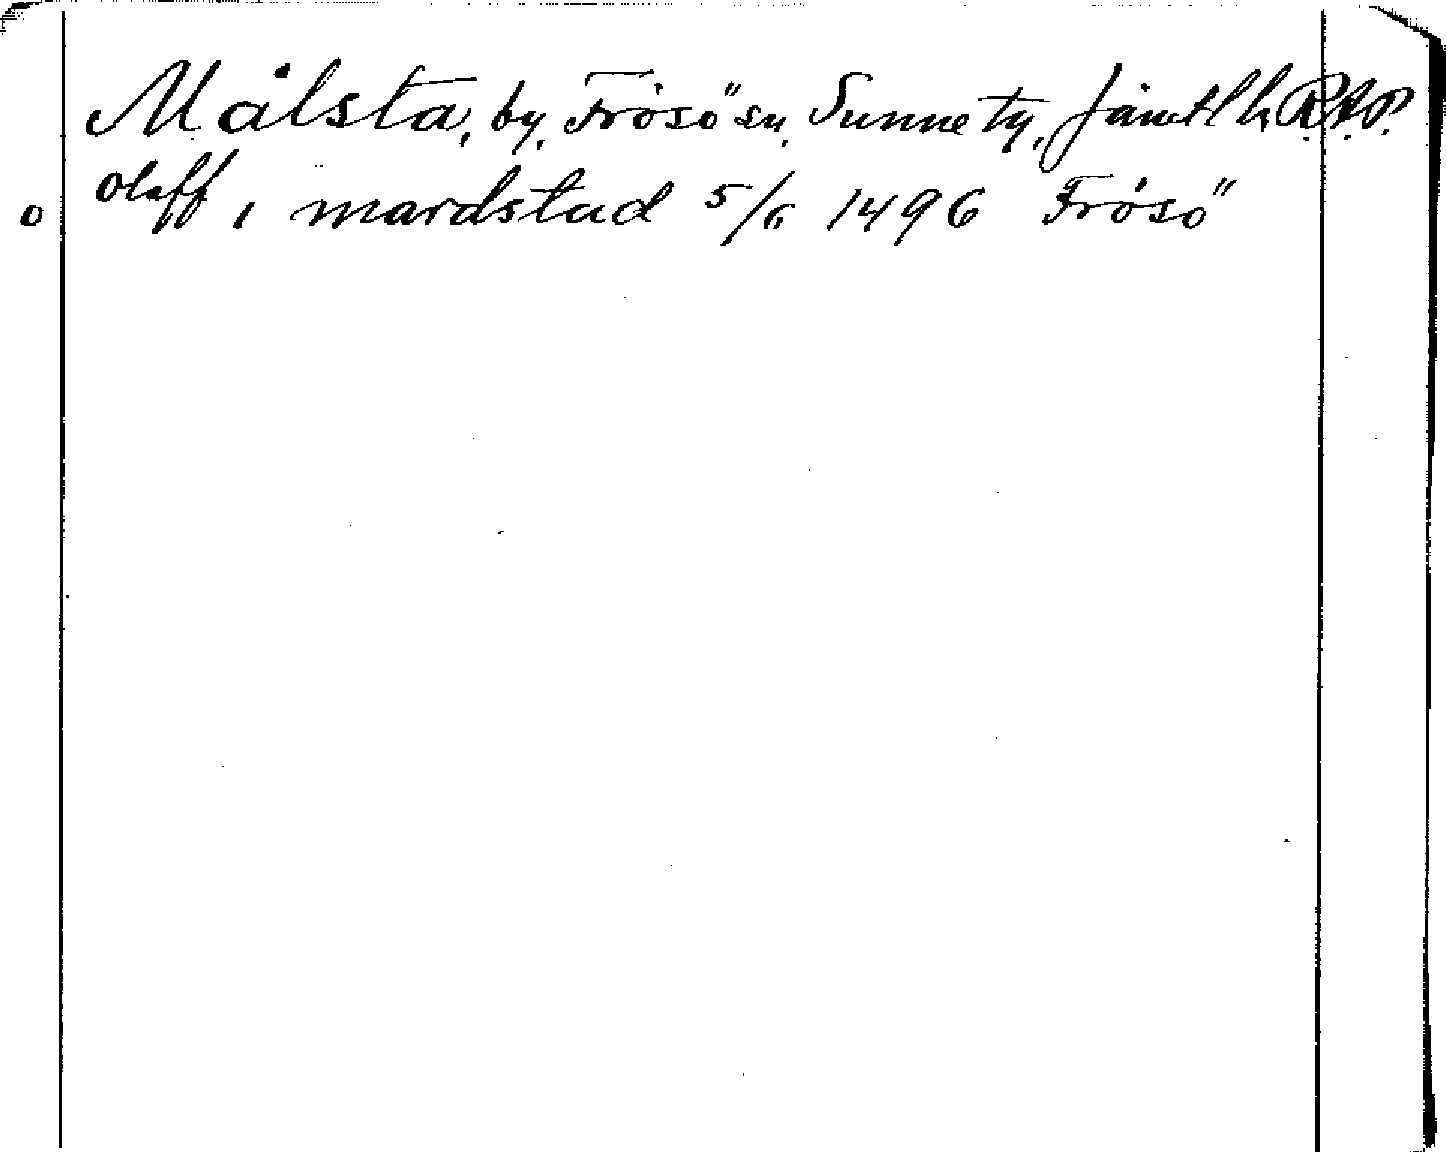 Målsta, by, Frösö sn. Sunne tg, Jämtl l. R.A.P.
o olaff i mardstad 5/6 1496 Frösö